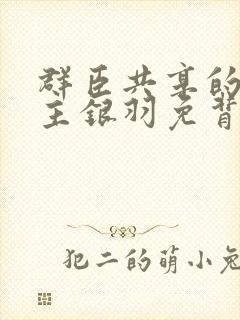 群臣共享的
主银羽免背
犯二的萌小兔